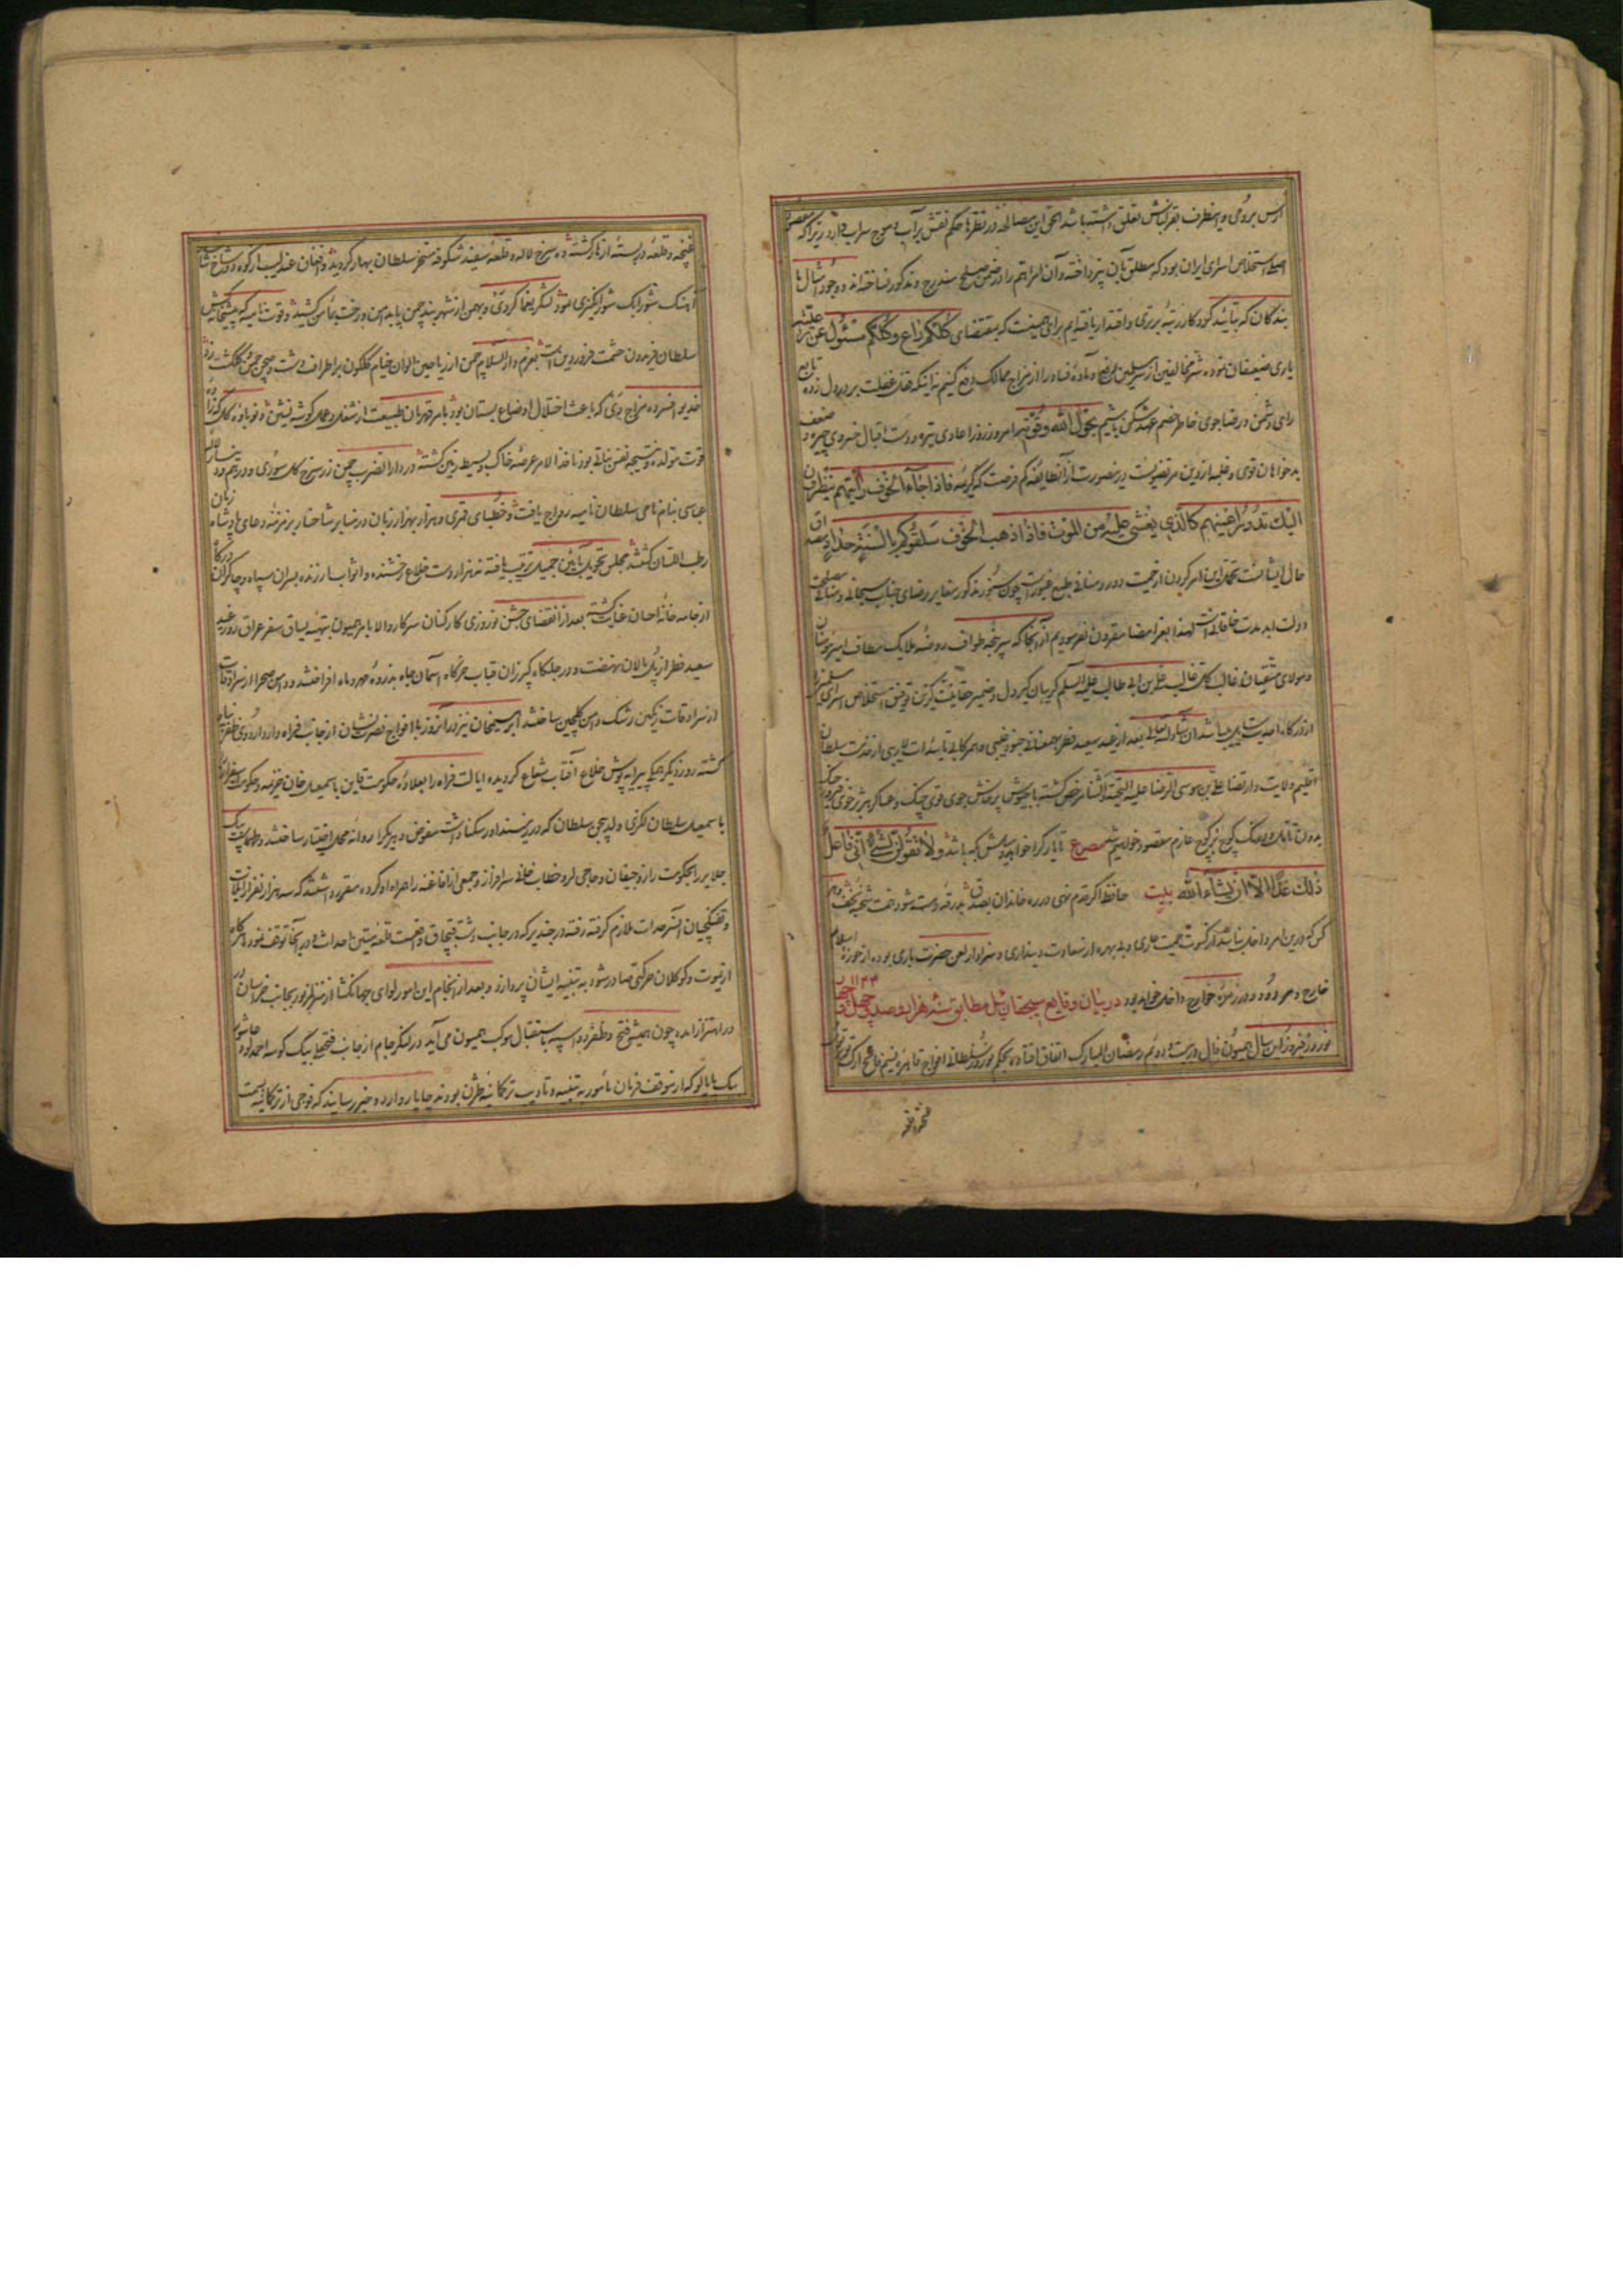 ارس برومی و اینطرف بقزلباش تعلق داشته باشد الحق این مصالحه در نظرها حکم نقش بر آب و موج سراب دارد زیرا که مقصود
استخلاص اسرای ایران بود که مطلق بآن نپرداخته و آن امر اهم را در ضمن صلح مندرج و مذکور نساخته اند و وجود امثال ما
بندگان که بتأیید کردگار رتبه برتری و اقتدار یافته ایم برای همینست که بمقتضای کلکم راع و کلکم مسئول عن رعیته
یاری ضعیفان نموده شر مخالفین از سر مسلمین رفع و ماده فساد را از مزاج ممالک دفع کنیم نه اینکه قفل غفلت بر در دل زده تابع
رای دشمن و رضاجوی خاطر خصم عهد شکن باشیم بحول الله وقوته امروز روز اعادی تیره و دست اقبال خسروی چیره و ضعف
بدخواهان قوی و غلبه ازین مر تقضیست درینصورت از آنطایفه کم فرصت که کریمه فاذا جاء الخوف رایتهم ینظرون
الیک تدور اعینهم کالذی یغشی علیه من الموت فاذا ذهب الخوف سلقوکم بالسنة حداد مصداق
حال ایشانست تحمل این امر کردن از حمیت دور و منافی طبع غیور است چون سنور مذکور مغایر رضای جناب سبحانی و منافی مصلحت
دولت ابد مدت خاقانی است لهذا بعز امضا مقرون نفرمودیم از آنجا که سرپنجه طواف روضه ملایک مطاف امیر مومنان
و مولای متقیان غالب کل غالب علی بن ابی طالب علیه السلم گریبان گیر دل و ضمیر حقایق گزین توفیق استخلاص اسرای مسلمین را
از درگاه احدیت سایل میباشد ان شاء الله تعالی بعد از عید سعید فطر بهمعنانی جنود غیبی و همرکابی تائیدات لاریبی از خدمت سلطان
اقلیم ولایت و ارتضا علی بن موسی الرضا علیه التحیة والثنا مرخص گشته با جیوش پرخاش جوی قوی چنگ و عساکر هژبر خوی فیروز جنگ
بدون تامل و درنگ کوچ بر کوچ عازم مقصود خواهیم شد مصرع تا یار کرا خواهد و میلش بکه باشد ولا تقولن لشیء انی فاعل
ذلک غدا الا ان یشاء الله بیت حافظ اگر قدم نهی در ره خاندان بصدق بدرقه رهت شود همت شحنه نجف و هر
کس که درین امر داخل نباشد از کسوت حمیت عاری و بی بهره از سعادت دینداری و سزاوار لعن حضرت باری بوده از حوزه اسلام
خارج و مردود و در زمره خوارج داخل خواهد بود در بیان وقایع سیچقان ئیل مطابق سنه هزار و صد و چهل و چهار ۱۱۴۴
نوروز فیروز این سال همیون فال در بیست و دویم رمضان المبارک اتفاق افتاده بحکم نوروز سلطانی افواج قاهره نسیم فاتح ارک
غنچه و قلعه دربسته ازهار گشته ده سرخ لاله و قلعه سفید شکوفه مسخر سلطان بهار گردید
آهنگ شورابک شور انگیزی نمود لشکر یغماگر دی و بهمن از شهر بند چمن پا بدامن
سلطان فریدون حشمت فروردین است بعزم دار السلام چمن از ریاحین الوان خیام گلگون بر اطراف دشت
خدیو افسرده مزاج دی که باعث اختلال اوضاع بستان بود بامر قهرمان طبیعت از شغل و عمل گوشه نشین
قوت متولده و نتیجه نفس نباتی بود نافذ الامر عرصه خاک و بسیط زمین گشته در دار الضرب چمن زر سرخ گل سوری و درهم
عباسی بنام نامی سلطان نامیه رواج یافت و خطبای قمری و هزار بهزار زبان در منابر شاخسار بزمزمه دعای پادشاه زمان
رطب اللسان گشتند مجلس تحویل بآئین جمیل ترتیب یافته سه هزار دست خلاع درخشنده و اثواب ارزنده بسران سپاه و چاکران درگاه
از جامه خانه احسان عنایت گشته بعد از انقضای جشن نوروزی کارکنان سرکار والا بامر همیون بتهیه یساق سفر عراق روز عید
سعید فطر از پل مالان نهضت و در جلگاه
از سرادقات رنگین رشک دامن گلچین ساختند امیر سیمنخان نیز در آنروز با افواج نصرت نشان از جانب فراه وارد اردوی ظفر پناه
گشته روز دیگر هر یک پیرایه پوش خلاع آفتاب شعاع گردیده ایالت فراه را بعلاوه حکومت قاین باسمعیل خان خزیمه و حکومت اسفزار
باسمعیل سلطان لکزی ولد بیجن سلطان که در ریزسند او سکنا داشت مفوض و هر یک را روانه محل اختیار ساختند و طهماسب بیک
جلایر را بحکومت
و تفنگچیان آنسرحدات ملازم گرفته رفته در خندیر که در جانب دشت قبچاق واقعست قلعه متین احداث و در آنجا توقف نموده هرگاه
از یموت و کوکلان حرکتی صادر شود به تنبیه ایشان پردازد و بعد از انجام این امور لوای جهانگشا از منزل مزبور بجانب خراسان
در اهتزاز آمده چون همیشه فتح و ظفر دو اسپه باستقبال موکب همیون می آید در لنگر جام از جانب فتحعلی بیک کوسه احمدلوی
بیک بابالو که از موقف فرمان مأمور به تنبیه و تادیب ترکمانیه طژن بودند چاپار وارد و خبر رسانیدند که فوجی از ترکمانیه